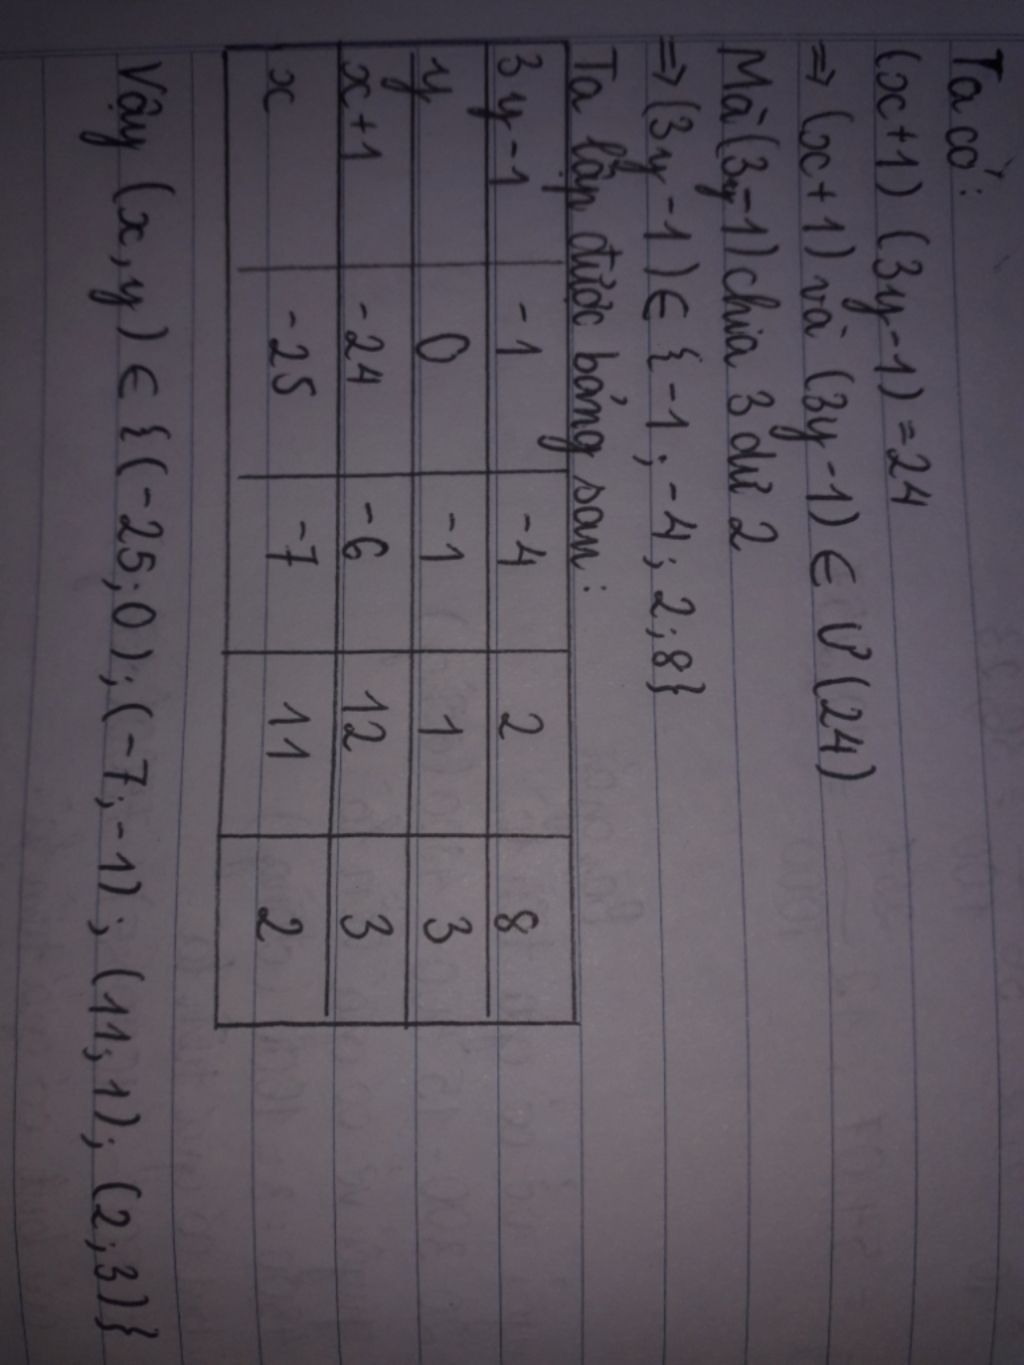 Ta có:
(x+1) (3y-1) = 24
=> (x+1) và (3y-1) ∈ Ư(24)
Mà (3y-1) chia 3 dư 2
=> (3y-1) ∈ {-1; -4; 2; 8}
Ta lập được bảng sau:
3y-1 -1 -4 2 8
y 0 -1 1 3
x+1 -24 -6 12 3
x -25 -7 11 2
Vậy (x,y) ∈ {(-25;0); (-7;-1); (11;1); (2;3)}